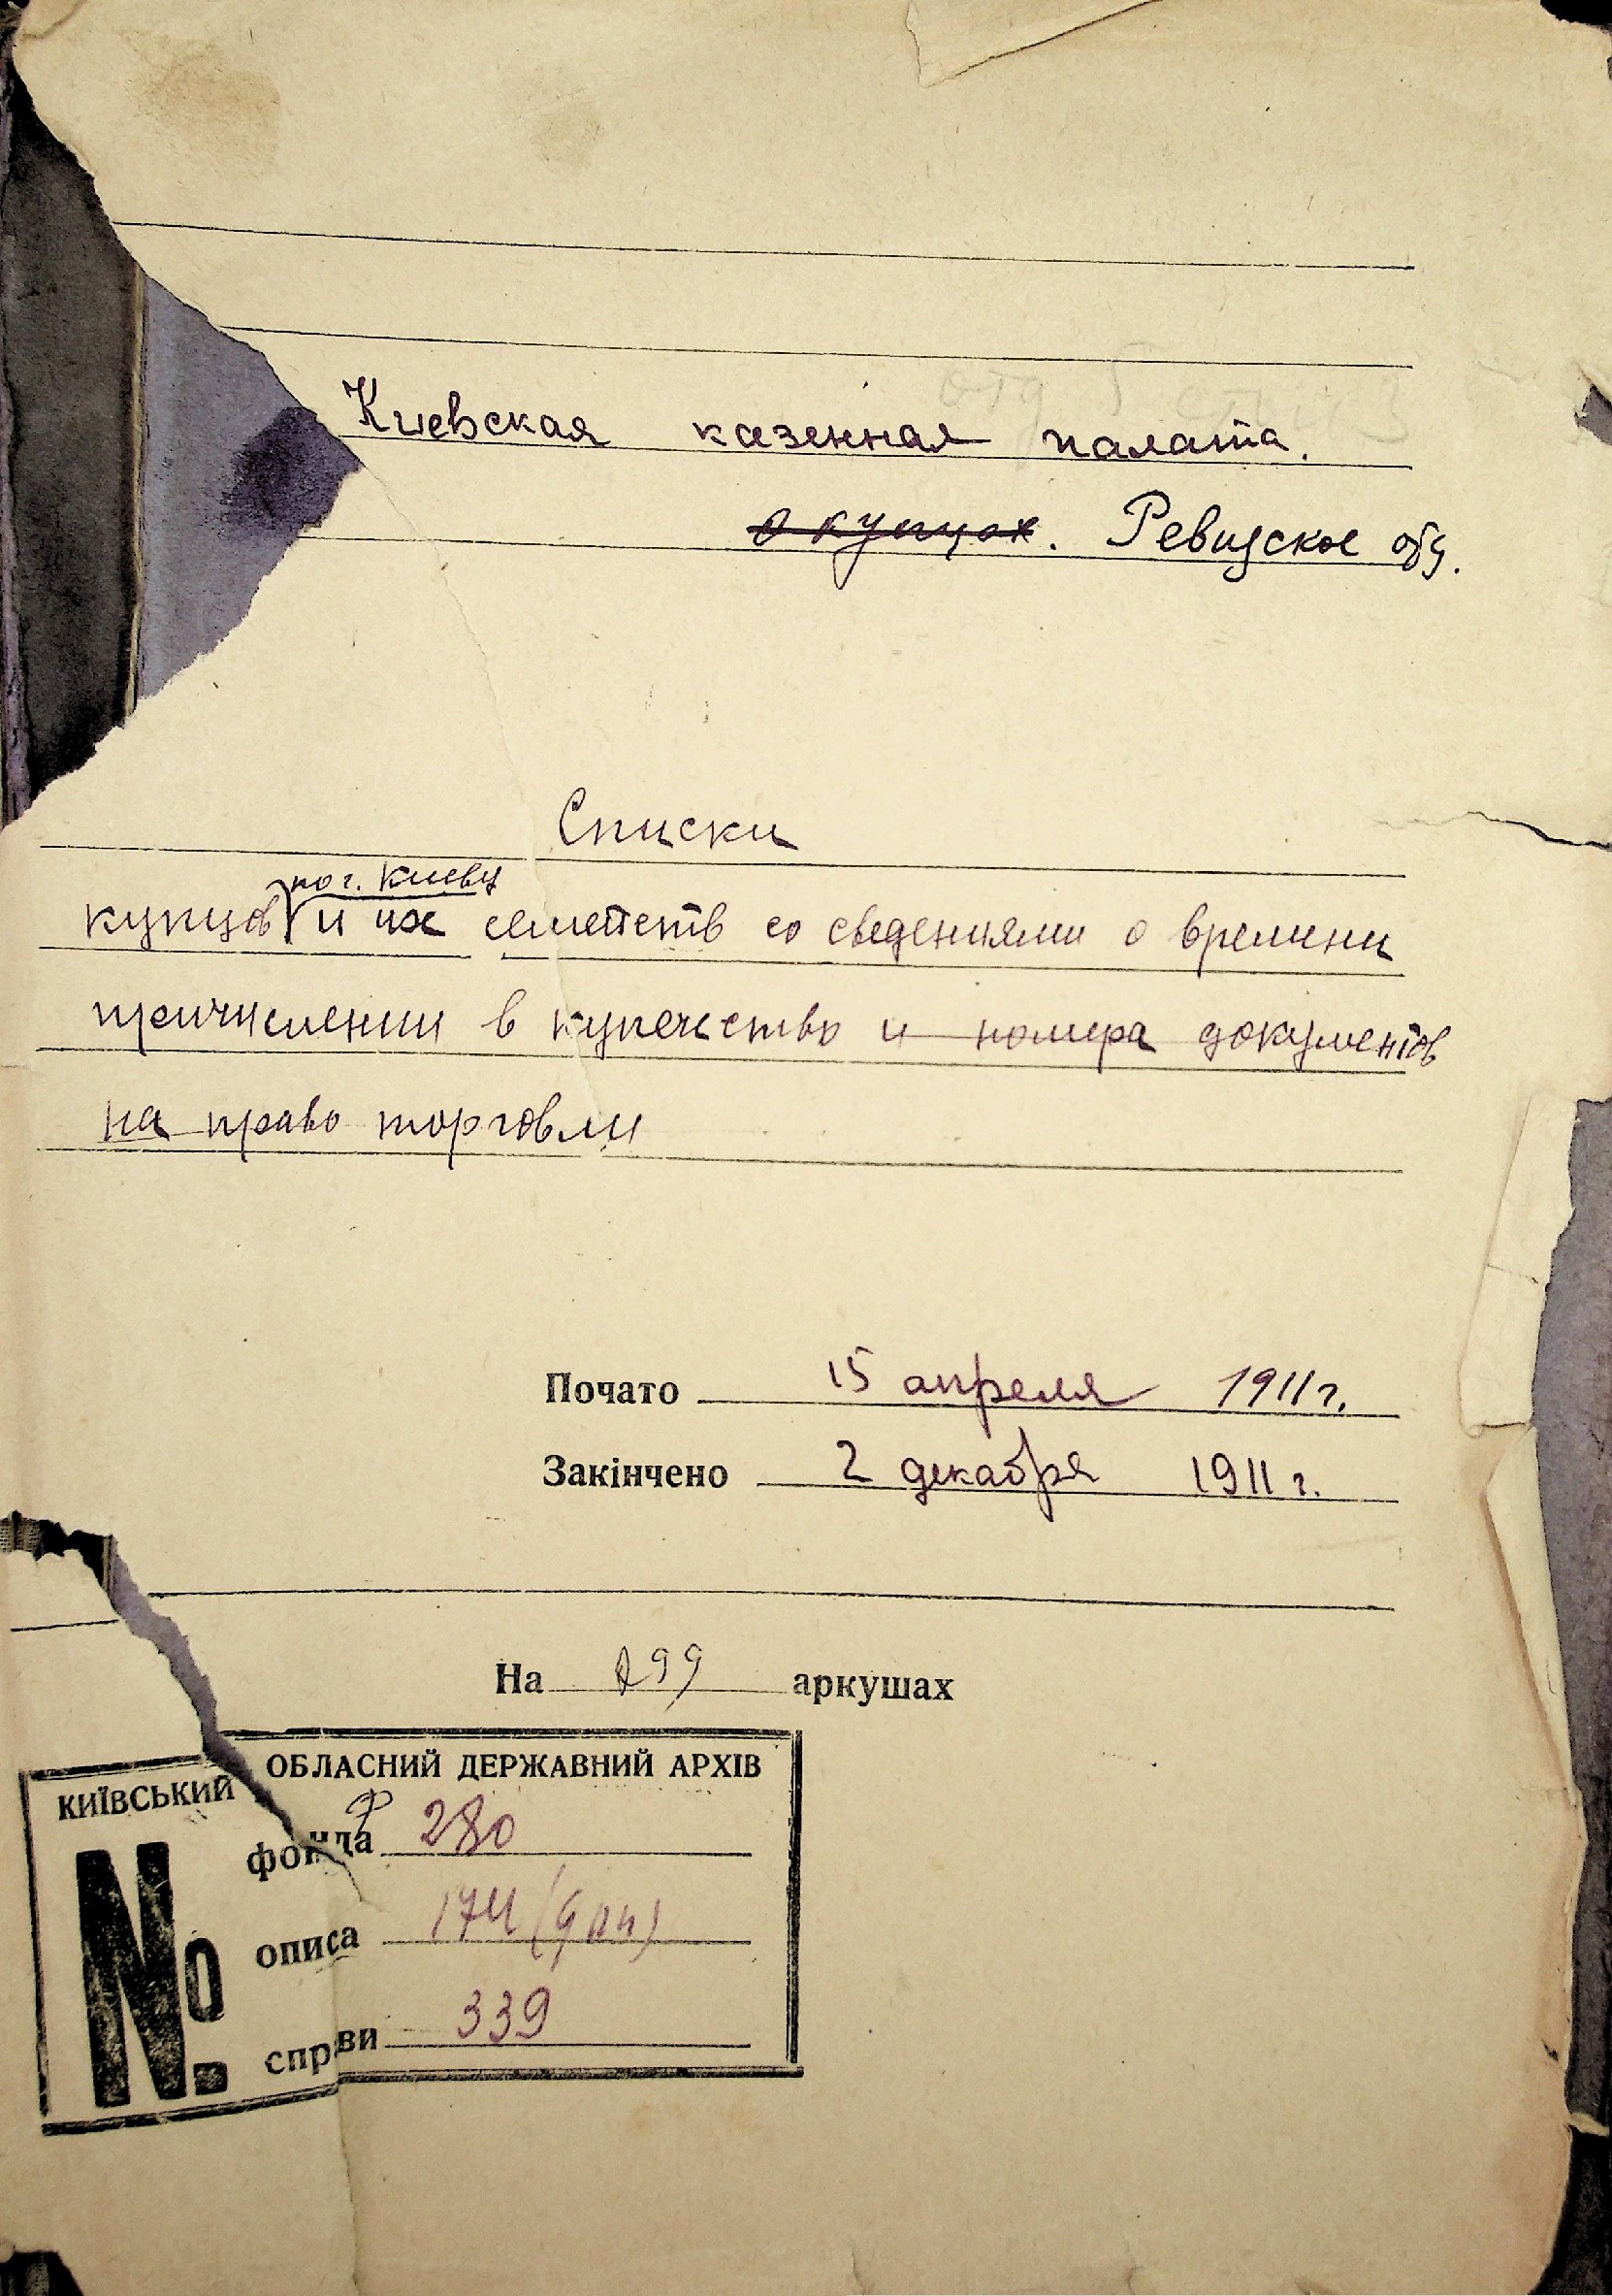 Киевская казенная палата.
о купцах. Ревизское
Списки
по г. Киеву
купцов и их семейств со сведениями о времени
причислении в купечество и номера документов
на право торговли
Почато 15 апреля 1911 г.
Закінчено 2 декабря 1911 г.
На 299 аркушах
КИЇВСЬКИЙ ОБЛАСНИЙ ДЕРЖАВНИЙ АРХІВ
№ фонда Ф 280
описа 174 (доп)
справи 339